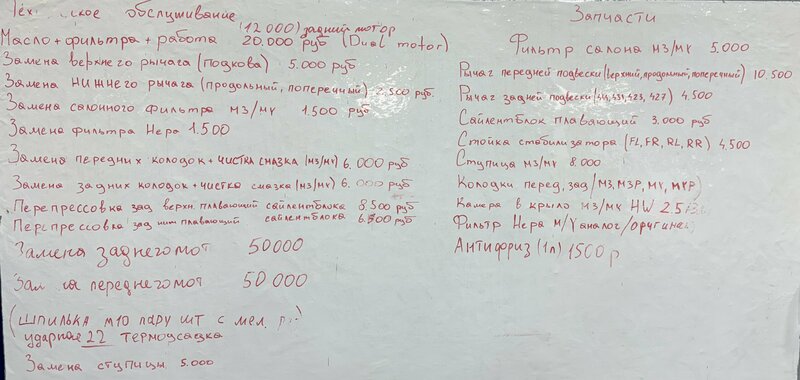 обслуживание
(12 000) задний мотор
Масло + фильтра + работа 20.000 руб (Dual motor)
Замена верхнего рычага (подкова) 5.000 руб
Замена нижнего рычага (продольный, поперечный) 2.500 руб
Замена салонного фильтра м3/му 1.500 руб
Замена фильтра Hepa 1.500
Замена передних колодок + чистка смазка (м3/му) 6.000 руб
Замена задних колодок + чистка смазка (м3/му) 6.000 руб
Перепрессовка зад верхн. плавающий сайлентблока 8.500 руб
Перепрессовка зад плавающий сайлентблока 6.500 руб
Замена заднего мот 50000
переднего мот 50 000
(шпилька м10 пару шт с мел.
ударное 22 термоусадка
Замена ступицы 5.000
Запчасти
Фильтр салона м3/му 5.000
Рычаг передней подвески (верхний, продольный, поперечный) 10.500
Рычаг задней подвески (431, 423, 427) 4.500
Сайлентблок плавающий 3.000 руб
Стойка стабилизатора (FL, FR, RL, RR) 4.500
Ступица м3/му 8.000
Колодки перед, зад / М3, М3Р, МУ, МУР)
Камера в крыло м3/му HW 2.5
Фильтр Hepa м/у аналог/оригинал
Антифриз (1л) 1500 р